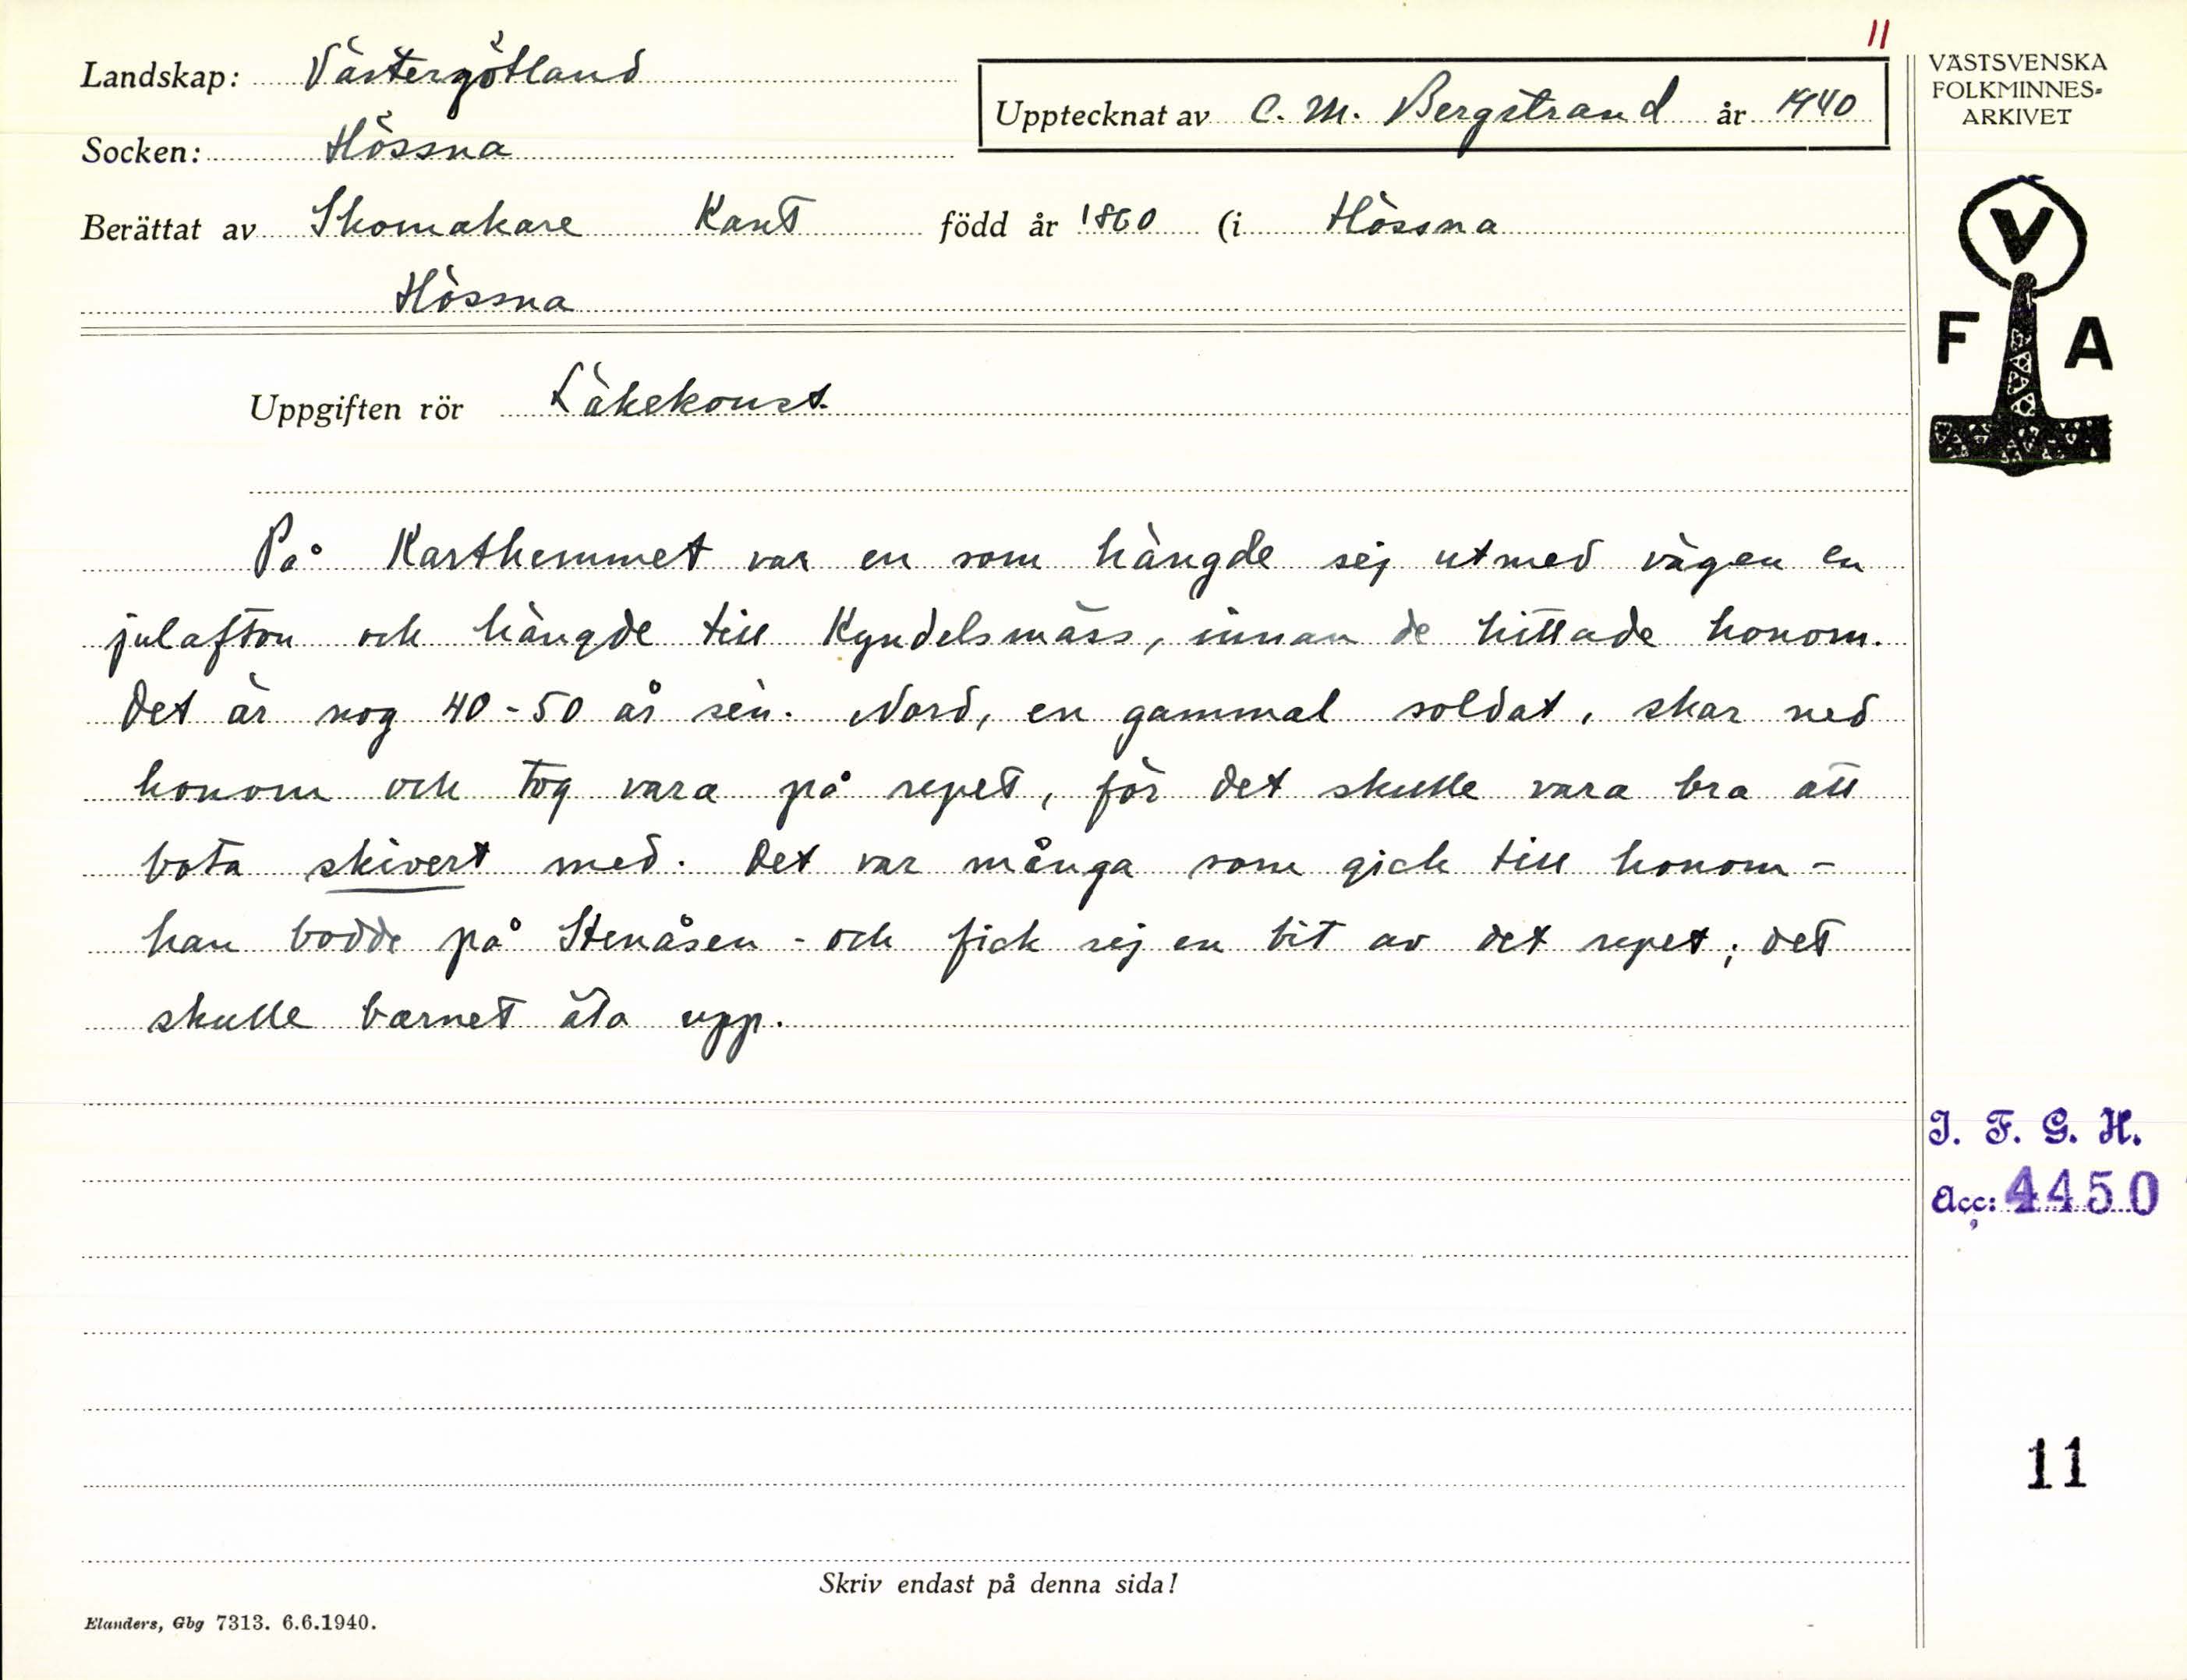 11
Landskap: Västergötland
Upptecknat av C. M. Bergstrand år 1940
Socken: Hössna
Berättat av Skomakare Kant född år 1860 (i Hössna
Hössna
Uppgiften rör Läkekonst.
På Karthemmet var en som hängde sej utmed vägen en
julafton och hängde till Kyndelsmäss, innan de hittade honom.
Det är nog 40-50 år sèn. Nord, en gammal soldat, skar ned
honom och tog vara på repet, för det skulle vara bra att
bota skivert med. Det var många som gick till honom -
han bodde på Stenåsen - och fick sej en bit av det repet; det
skulle barnet äta upp.
Skriv endast på denna sida!
Elanders, Gbg 7313. 6.6.1940.
VÄSTSVENSKA
FOLKMINNES-
ARKIVET
V
F A
I. F. G. H.
Acc: 4450
11